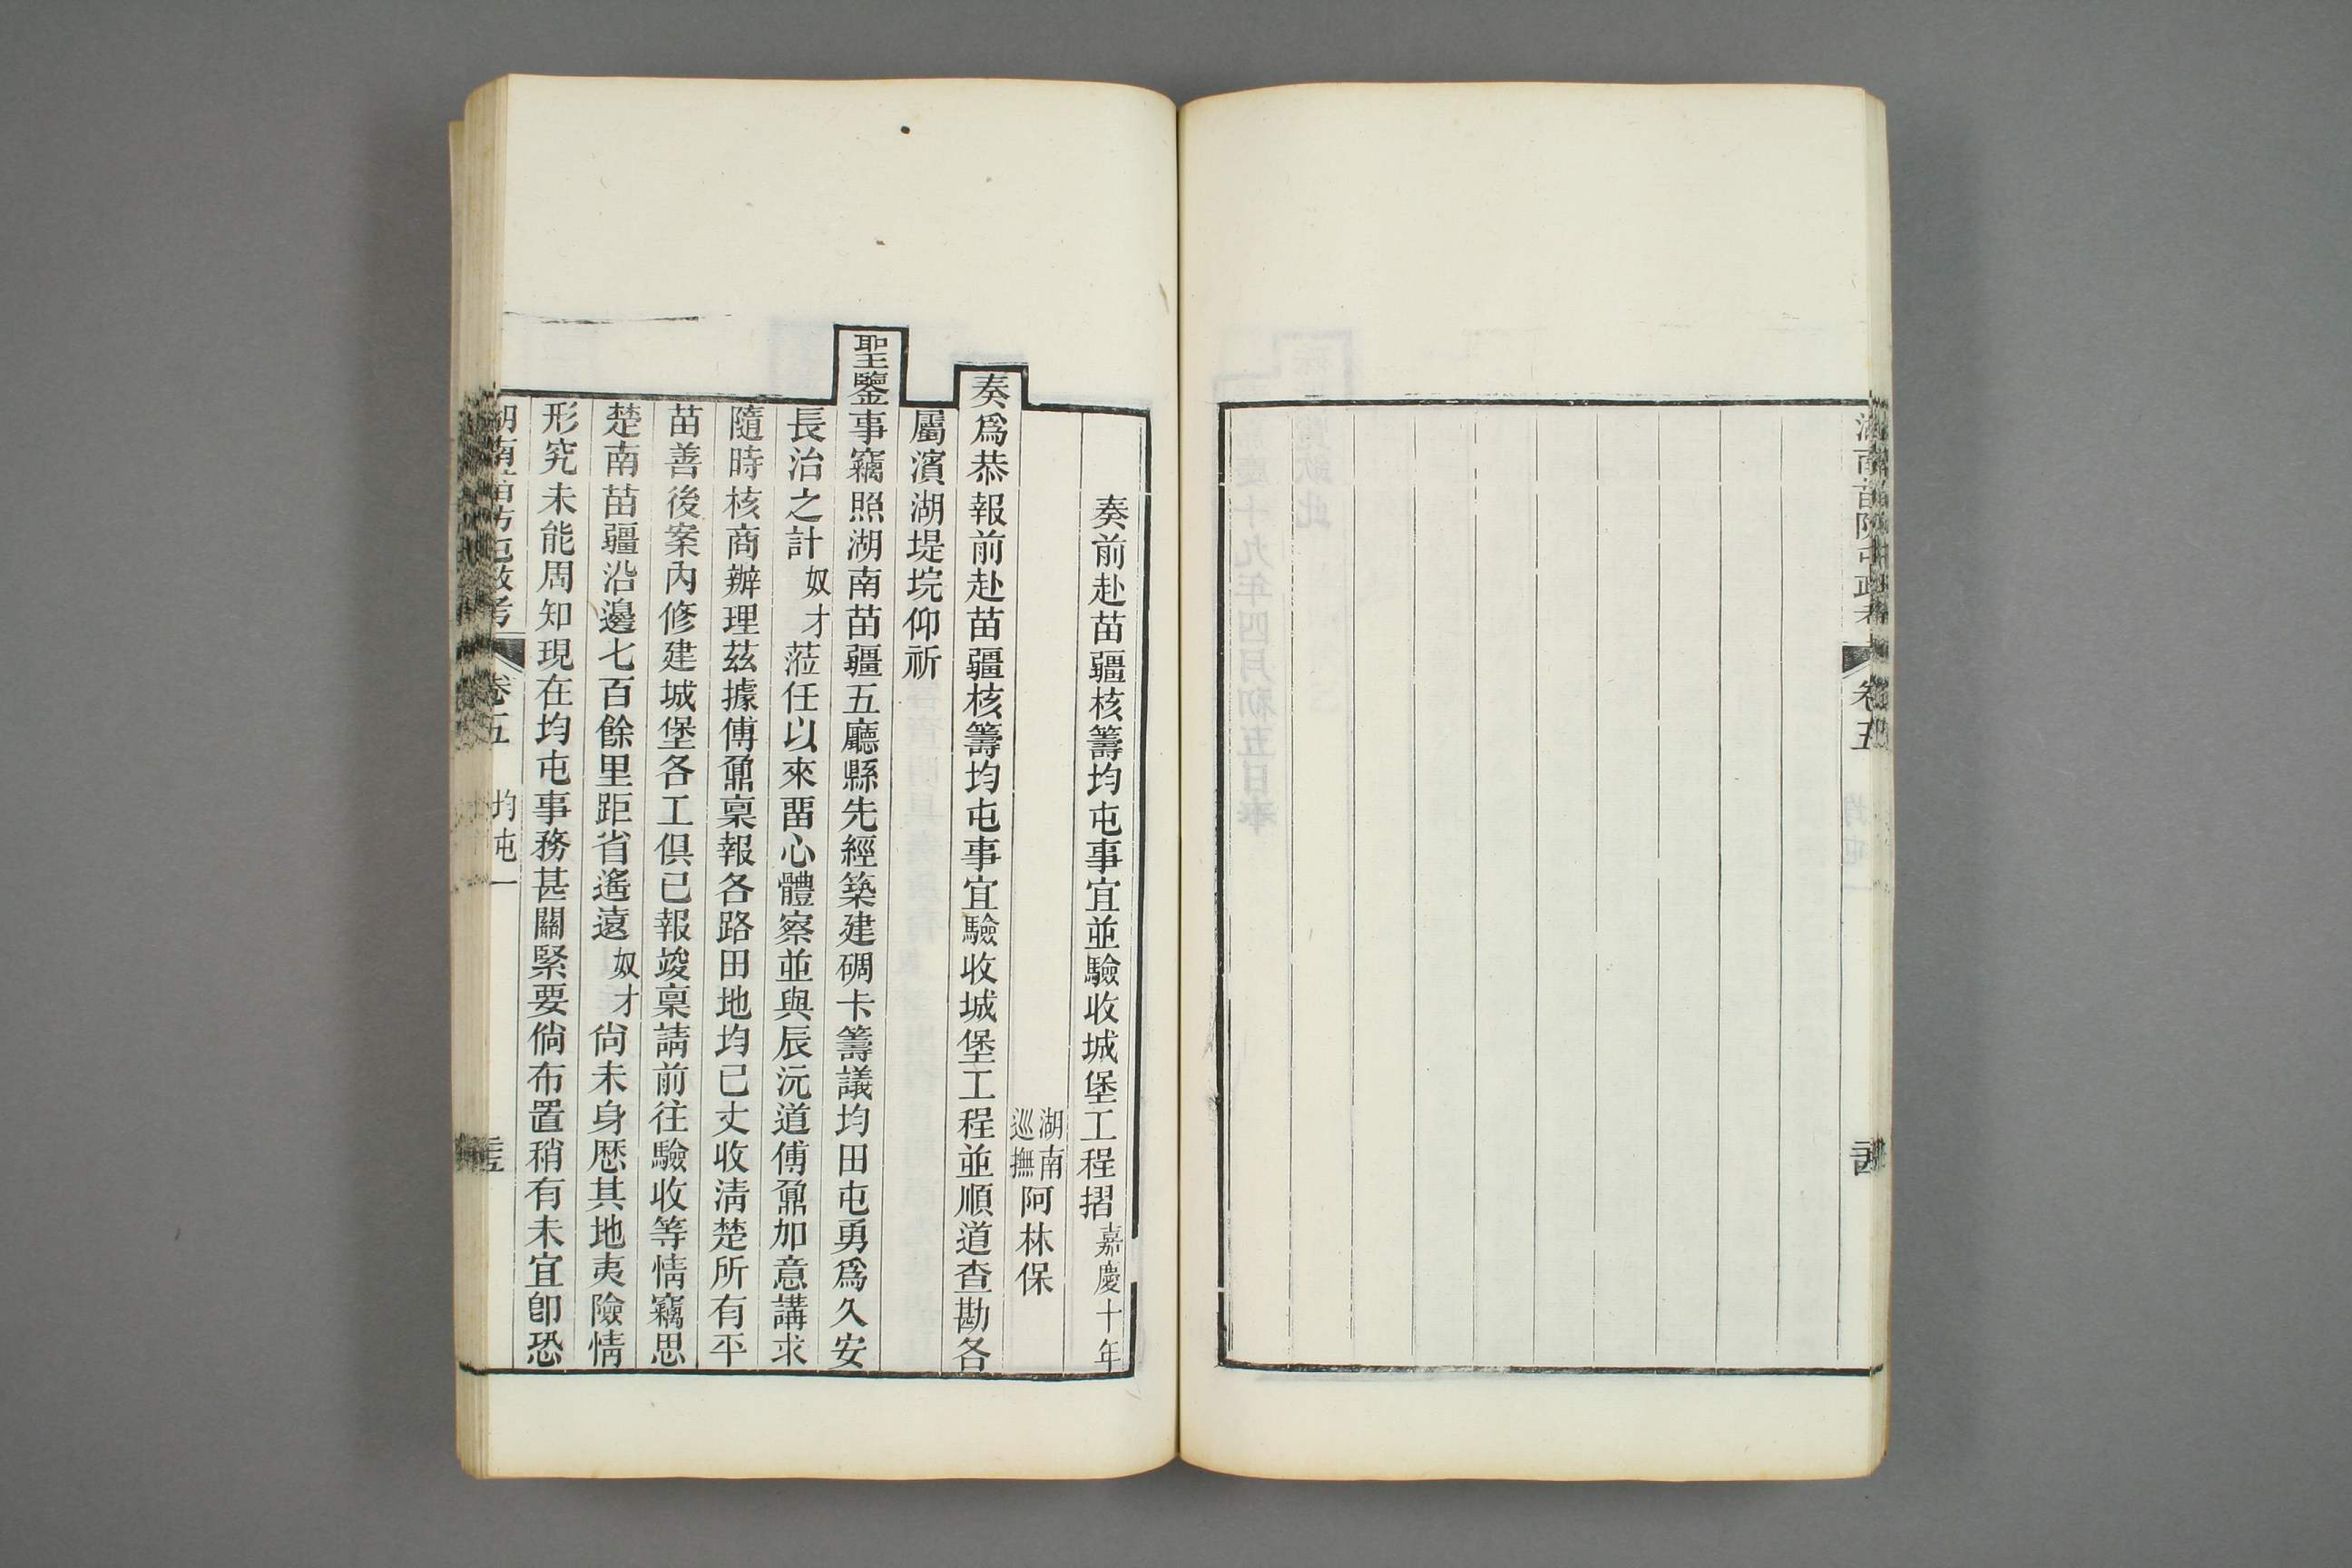 奏前赴苗疆核籌均屯事宜並驗收城堡工程摺嘉慶十年
湖南巡撫阿林保
奏爲恭報前赴苗疆核籌均屯事宜驗收城堡工程並順道查勘各
屬濱湖堤垸仰祈
聖鑒事竊照湖南苗疆五廳縣先經築建碉卡籌議均田屯勇爲久安
長治之計奴才蒞任以來畱心體察並與辰沅道傅鼐加意講求
隨時核商辦理茲據傅鼐稟報各路田地均已丈收淸楚所有平
苗善後案內修建城堡各工俱已報竣稟請前往驗收等情竊思
楚南苗疆沿邊七百餘里距省遙遠奴才尙未身歷其地夷險情
形究未能周知現在均屯事務甚關緊要倘布置稍有未宜卽恐
湖南苗防屯政考
卷五
均屯一